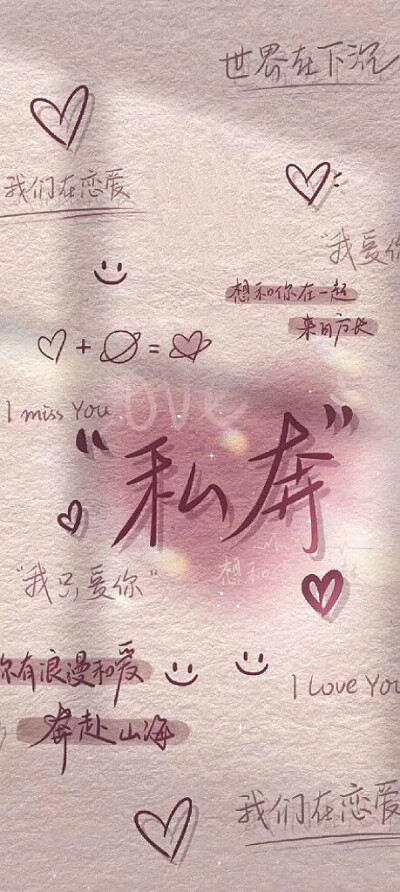 世界在下沉
我们在恋爱
"我爱你
想和你在一起
来日方长
+ =
I miss You
Love
"私奔"
想和
"我只爱你"
你有浪漫和爱
I Love You
奔赴山海
我们在恋爱